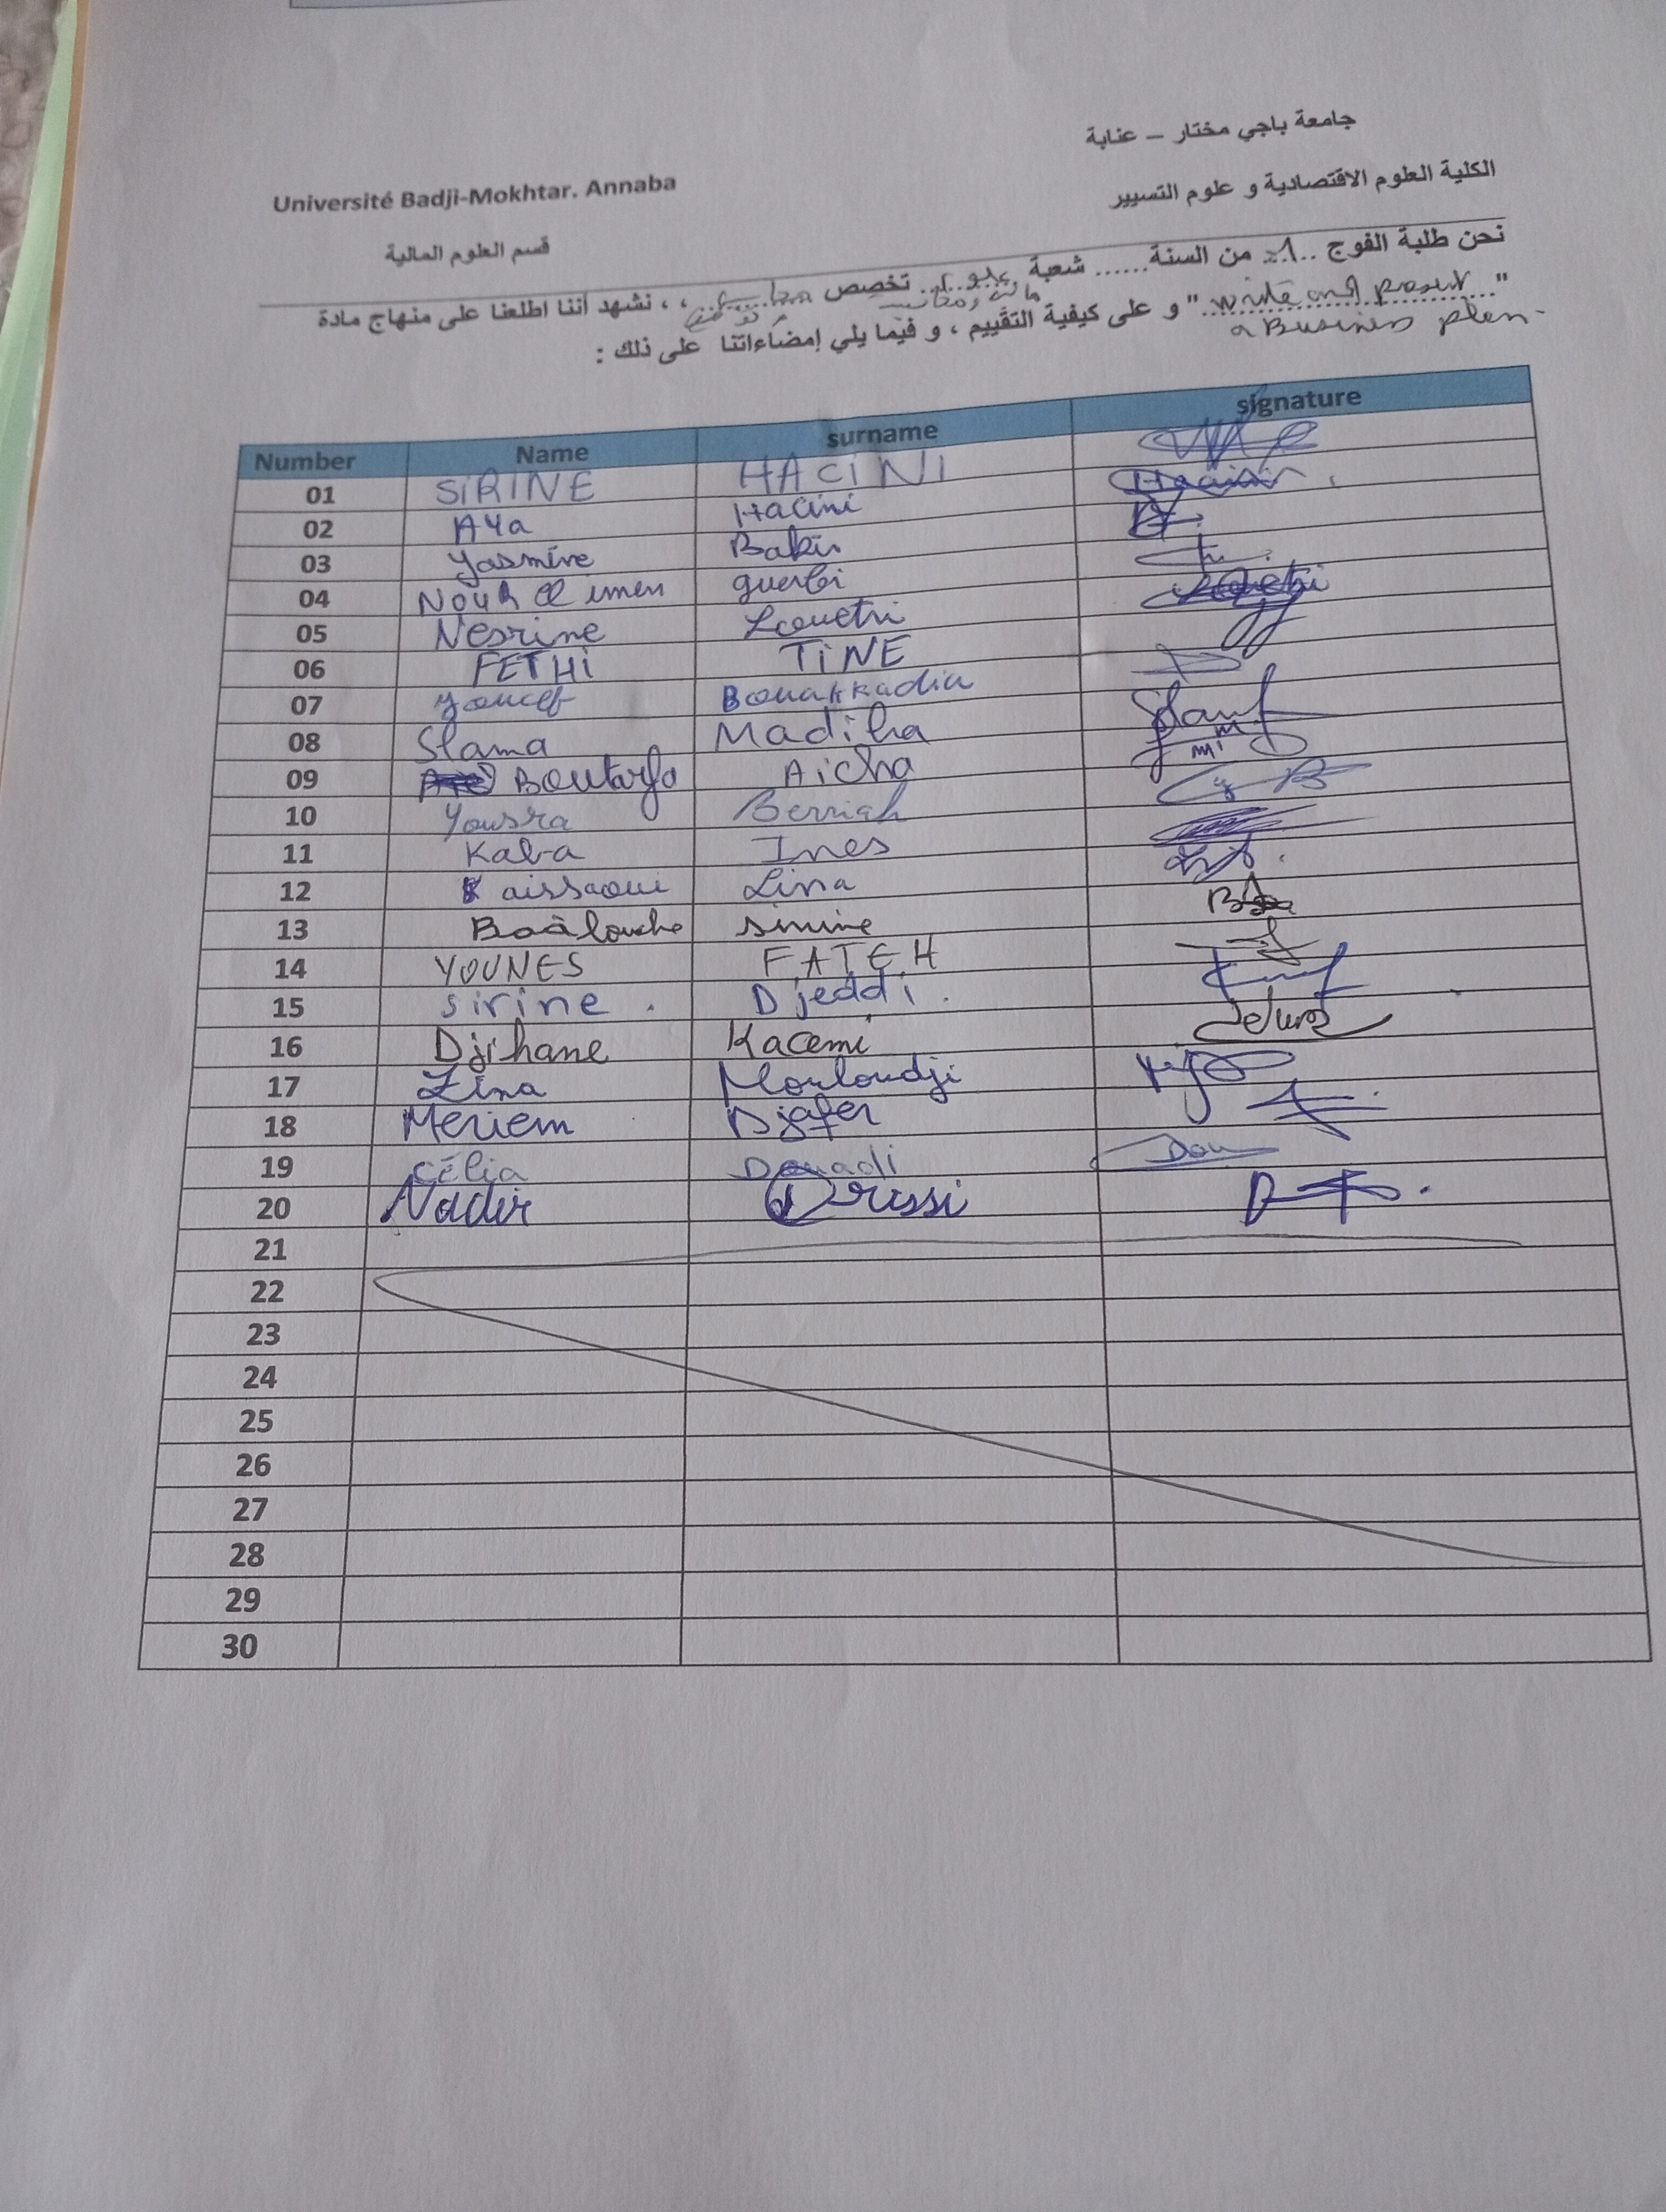 جامعة باجي مختار – عنابة
الكلية العلوم الاقتصادية و علوم التسيير
Université Badji-Mokhtar. Annaba
قسم العلوم المالية
نحن طلبة الفوج ..1.. من السنة...... شعبة علوم مالية ومحاسبة تخصص ، ، نشهد أننا اطلعنا على منهاج مادة
"write and present a Business plan" و على كيفية التقييم ، و فيما يلي إمضاءاتنا على ذلك :
Number Name surname signature
01 SiRINE HACiNi
02 Aya Hacini
03 yasmine Bakir
04 Nour El imen guerbi
05 Nesrine Laouetri
06 FETHi TiNE
07 youcef Bouakkadia
08 Slama Madiha
09 Boutarfa Aicha
10 Yousra Berriah
11 Kaba Ines
12 aissaoui Lina
13 Baâlouche sirine
14 YOUNES FATEH
15 sirine . Djeddi .
16 Djihane Kacemi
17 Lina Mouloudji
18 Meriem Djafer
19 Célia Douadi
20 Nadir Drissi
21
22
23
24
25
26
27
28
29
30